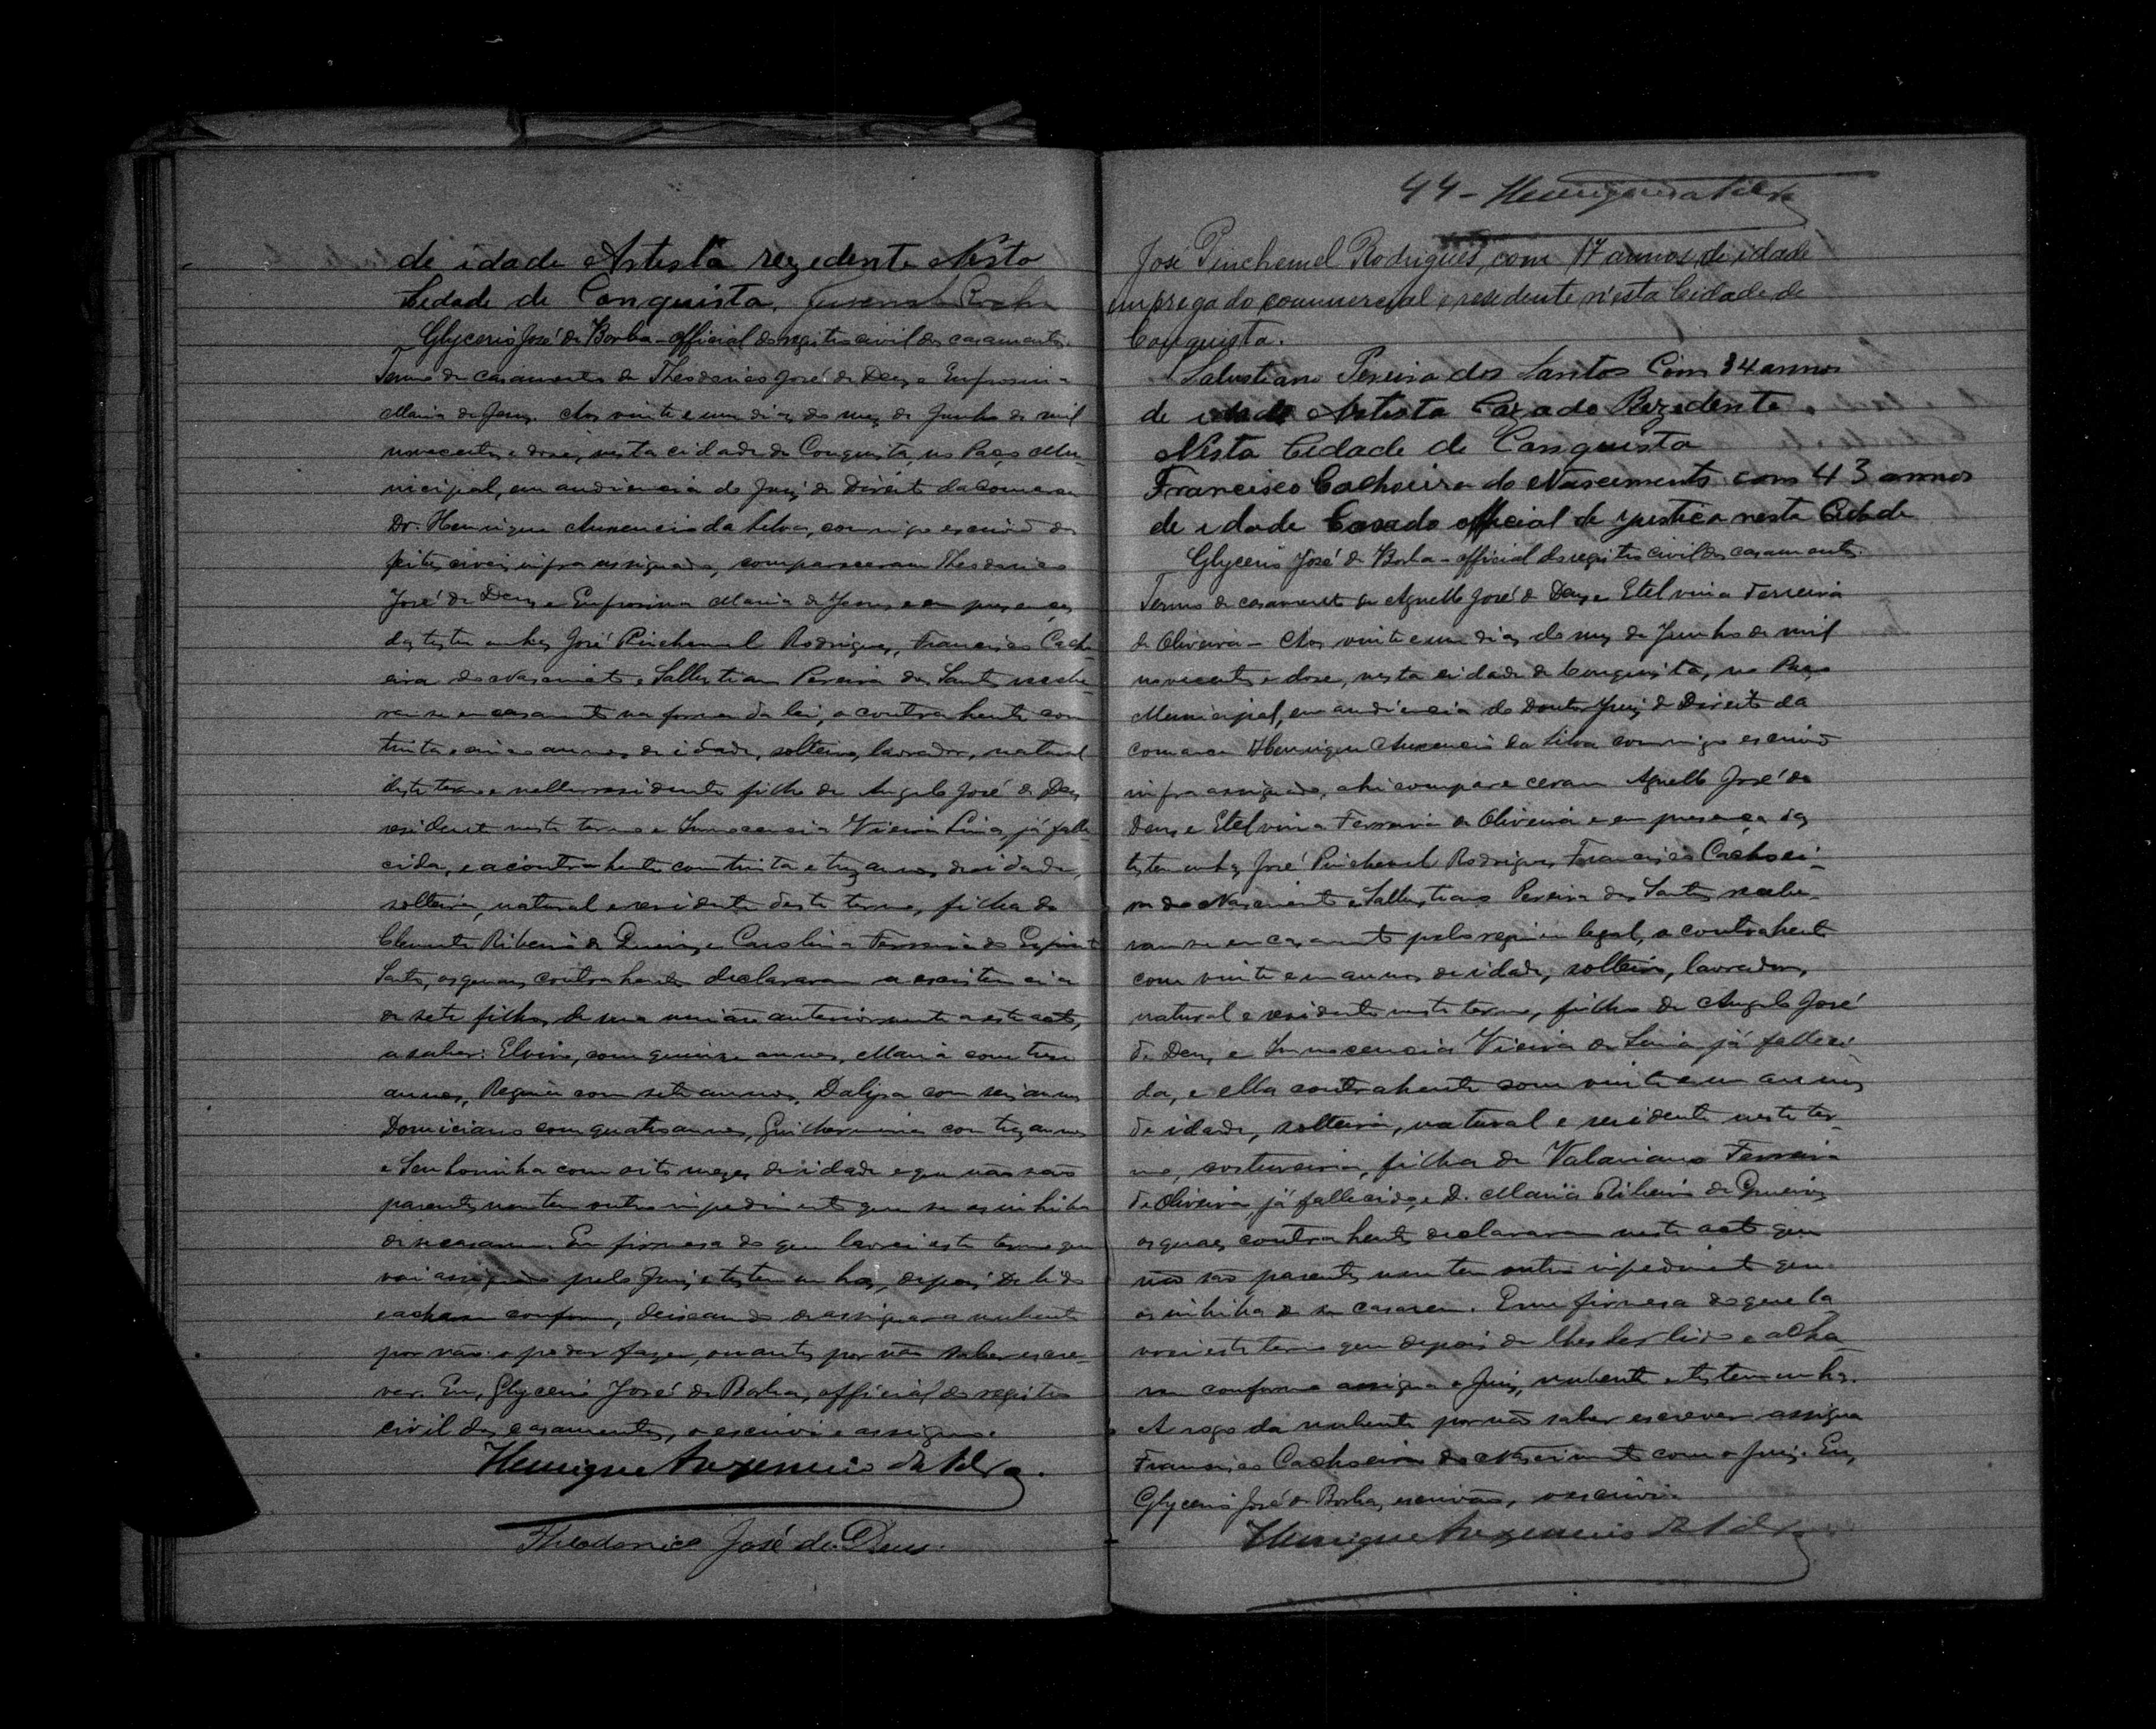 de idade Artista rezedente Nesta
Cidade de Conquista. Juvenal Rocha
Glycerio José de Borba - official do registro civil dos casamentos.
Termo de casamento de Theodorico José de Deus e Enfrosina
Maria de Jesus. Aos vinte e um dias do mez de Junho de mil
novecentos e doze, nesta cidade de Conquista, no Paço Mu-
nicipal, em audiencia do Juiz de Direito da comarca
Dr. Henrique Auxencio da Silva, commigo escrivão dos
feitos civeis infra assignado, compareceram Theodorico
José de Deus e Enfrosina Maria de Jesus e em presença
das testemunhas José Pinchemel Rodrigues, Francisco Cacho-
eira do Nascimento e Sallustiano Pereira dos Santos recebe-
ram-se em casamento na forma da lei, o contrahente com
trinta e cinco annos de idade, solteiro, lavrador, natural
deste termo e nelle residente filho de Angelo José de Deus
residente neste termo e Innocencia Vieira Lima, já falle-
cida, e a contrahente com trinta e tres annos de idade,
solteira, natural e residente deste termo, filha de
Clemente Ribeiro de Queiroz e Carolina Ferreira do Espirito
Santo, os quaes contrahentes declararam a existencia
de sete filhos de sua união anteriormente a este acto,
a saber: Elvira, com quinze annos, Maria com treze
annos, Regina com sete annos, Dalysa com seis annos
Domiciano com quatro annos, Guilhermina com tres annos
e Senhorinha com oito mezes de idade e que não são
parentes nem tem outro impedimento que se os inhiba
de se casarem. Em firmesa do que lavrei este termo que
vai assignado pelo Juiz e testemunhas, depois de lido
e acharem conforme, deixando de assignar a nubente
por não o poder fazer, ou antes por não saber escre-
ver. Eu, Glycerio José de Borba, official do registro
civil dos casamentos, o escrevi e assigno.
Henrique Auxencio da Silva.
Theodorico José de Deus.
44 - Henrique da Silva
José Pinchemel Rodrigues, com 17 annos de idade
empregado commercial e residente n'esta Cidade de
Conquista.
Salustiano Pereira dos Santos Com 34 annos
de idade Artista Cazado Rezedente
Nesta Cidade de Conquista
Francisco Cachoeira do Nascimento com 43 annos
de idade Casado official de justica nesta Cidade
Glycerio José de Borba - official do registro civil dos casamentos.
Termo de casamento de Agnello José de Deus e Etelvina Ferreira
de Oliveira - Aos vinte e um dias do mez de Junho de mil
novecentos e doze, nesta cidade de Conquista, no Paço
Municipal, em audiencia do Doutor Juiz de Direito da
comarca Henrique Auxencio da Silva commigo escrivão
infra assignado, ahi compareceram Agnello José de
Deus e Etelvina Ferreira de Oliveira e em presença das
testemunhas José Pinchemel Rodrigues, Francisco Cachoei-
ra do Nascimento e Sallustiano Pereira dos Santos recebe-
ram-se em casamento pelo regimen legal, o contrahente
com vinte e um annos de idade, solteiro, lavrador,
natural e residente neste termo, filho de Angelo José
de Deus e Innocencia Vieira de Lima já falleci-
da, e ella contrahente com vinte e um annos
de idade, solteira, natural e residente neste ter-
mo, costureira, filha de Valeriano Ferreira
de Oliveira, já fallecido, e D. Maria Ribeiro de Queiroz
os quaes contrahentes declararam neste acto que
não são parentes nem tem outro impedimento que
os inhiba de se casarem. Em firmesa do que la-
vrei este termo que depois de lhes ser lido e acha-
rem conforme assigna o Juiz, nubente e testemunhas.
A rogo da nubente por não saber escrever assigna
Francisco Cachoeira do Nascimento com o Juiz. Eu,
Glycerio José de Borba, escrivão, o escrevi.
Henrique Auxencio da Silva